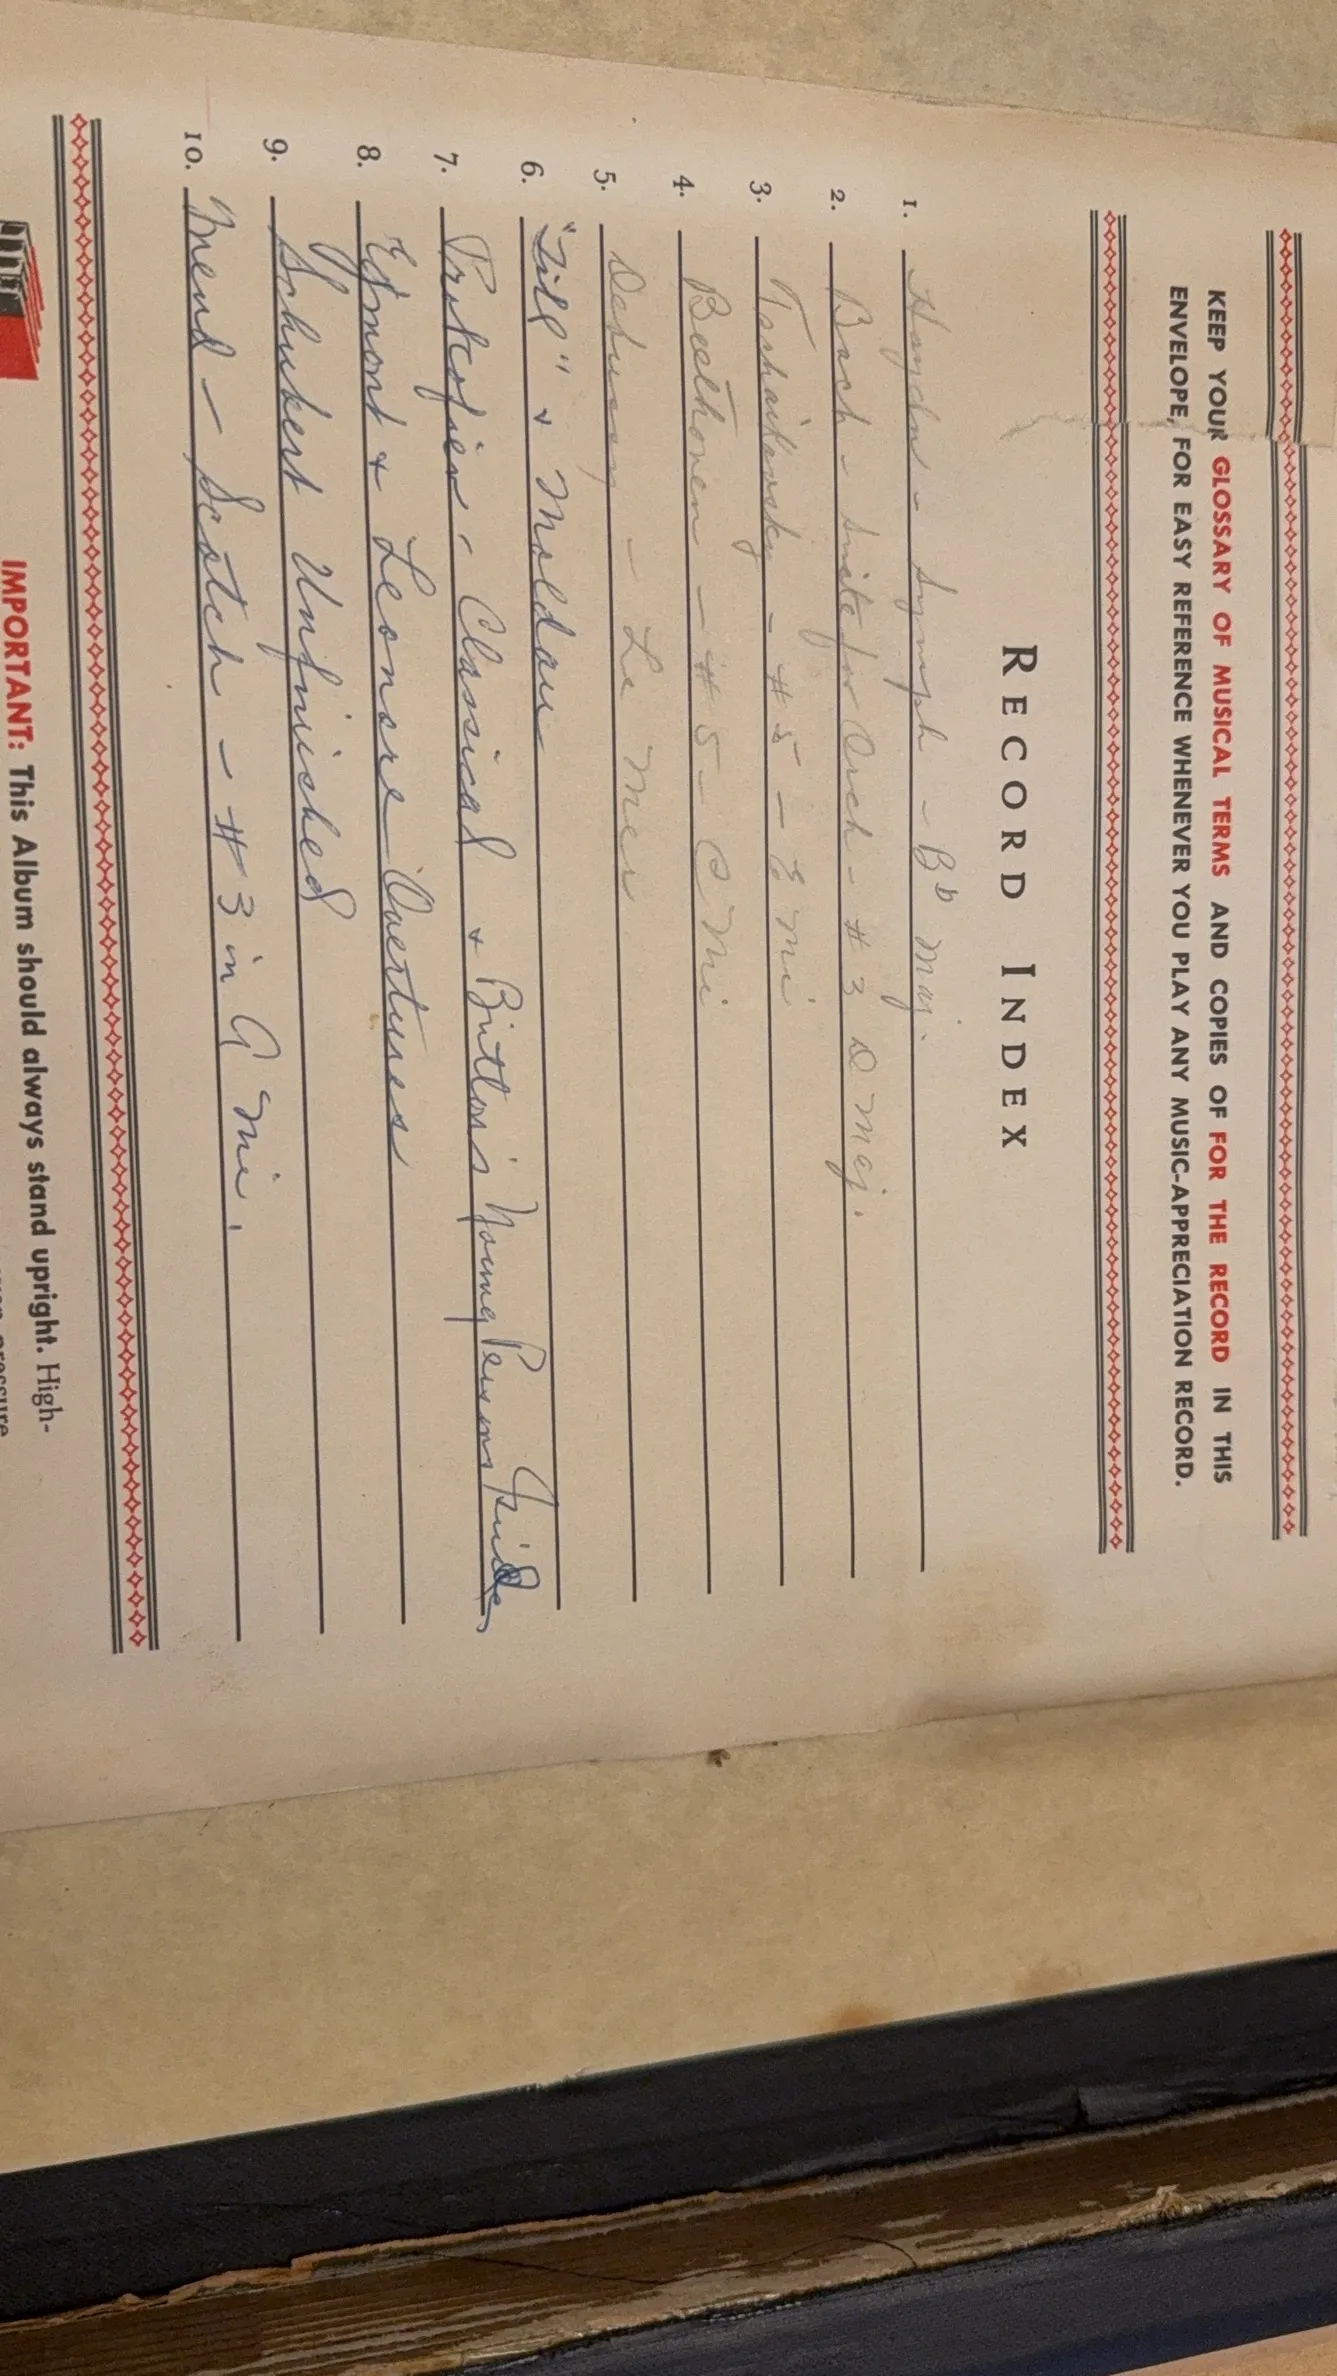 KEEP YOUR GLOSSARY OF MUSICAL TERMS AND COPIES OF FOR THE RECORD IN THIS
ENVELOPE, FOR EASY REFERENCE WHENEVER YOU PLAY ANY MUSIC-APPRECIATION RECORD.
RECORD INDEX
1. Haydn - Symph - Bb Maj.
2. Bach - Suite for Orch - #3 D Maj.
3. Tschaikovsky - #5 - E Mi
4. Beethoven - #5 - C Mi
5. Debussy - La Mer
6. "Till" + Moldau
7. Prokofiev - Classical + Britton's Young Persons Guide
8. Egmont + Leonore Overtures
9. Schubert Unfinished
10. Mend - Scotch - #3 in A Mi.
IMPORTANT: This Album should always stand upright. High-
pressure